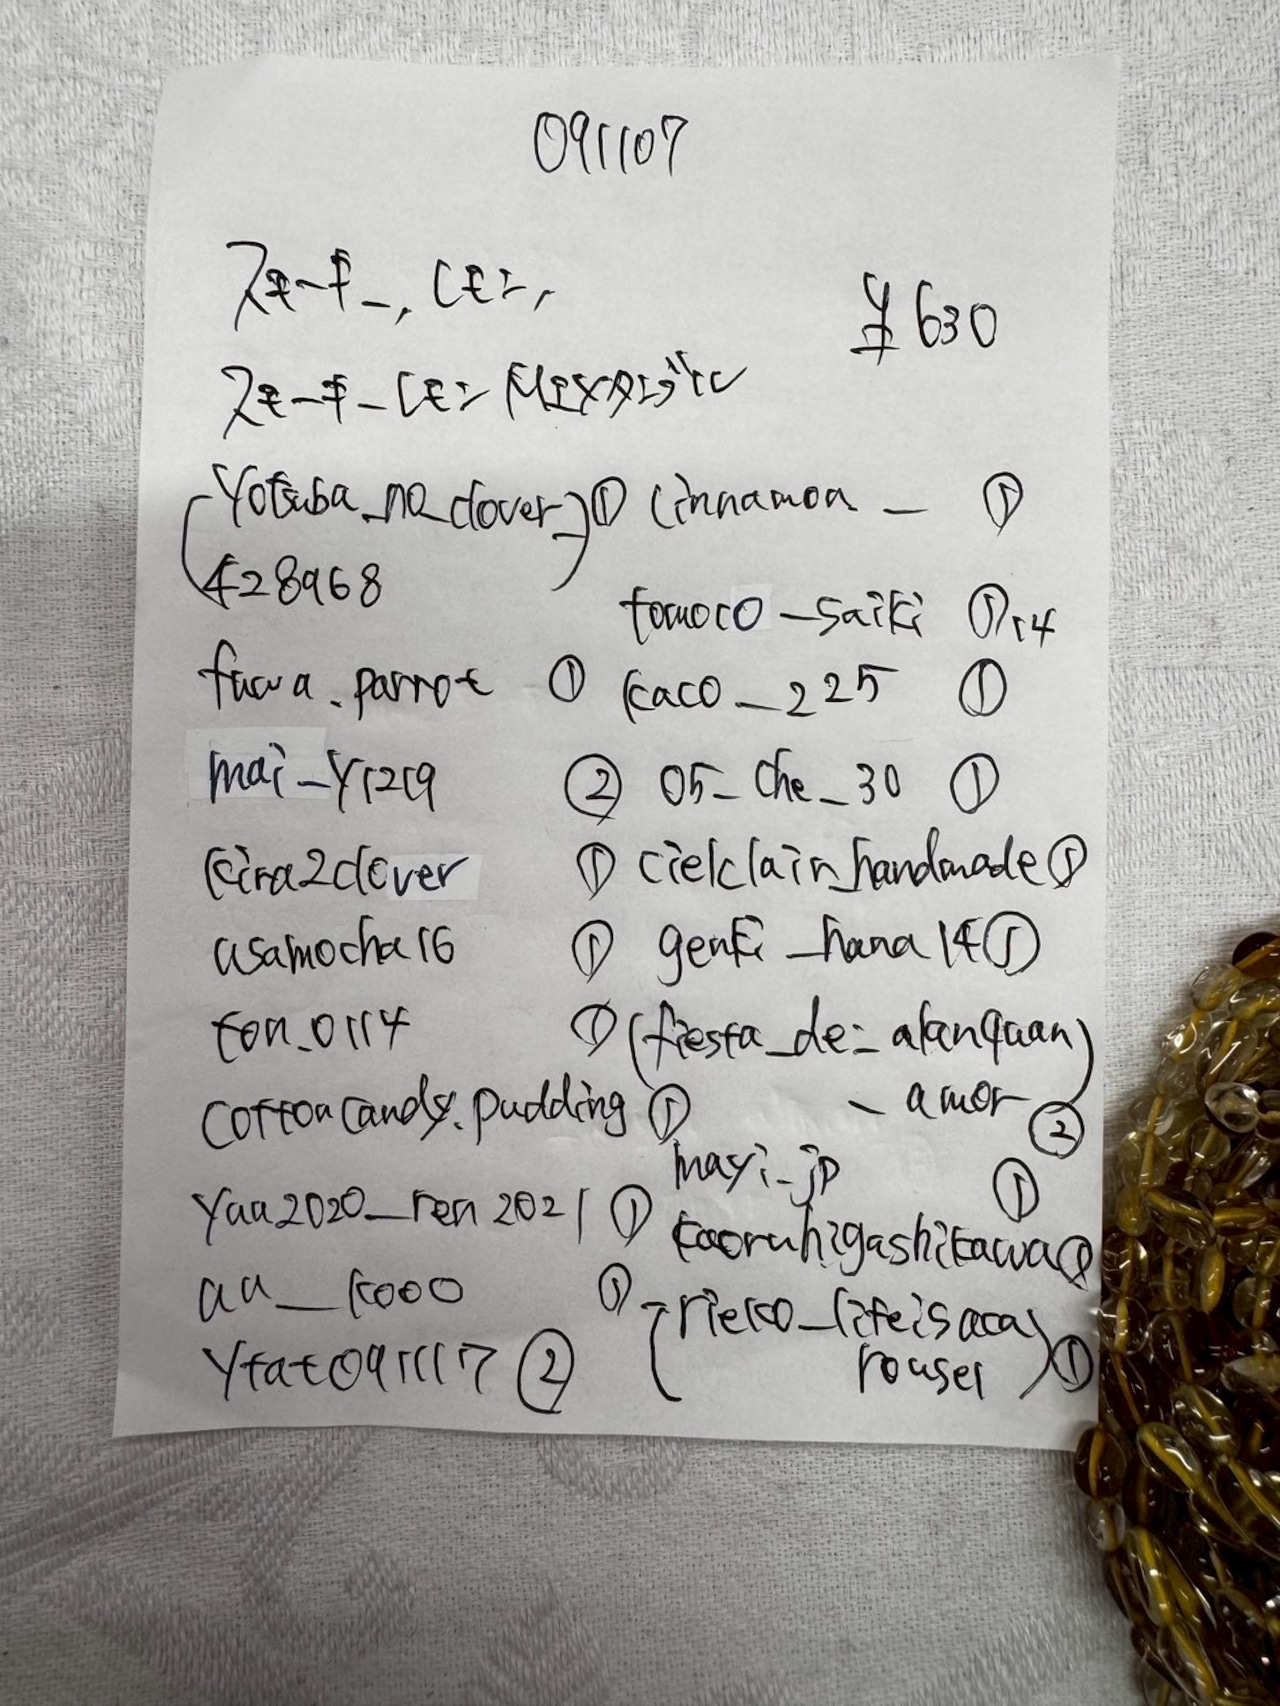 091107
スモーキー,レモン,
¥630
スモーキーレモンMIXタンブル
(yotsuba_no_clover_ ①
428968)
fuwa.parrot ①
mai_y1219 ②
kira2clover ①
asamocha16 ①
ton_0114 ①
cottoncandy.pudding ①
yaa2020_ren2021 ①
aa__kooo ①
ytat091117 ②
cinnamon_ ①
tomoco_saiki ①14
kaco_225 ①
05_che_30 ①
cielclair_handmade ①
genki_hana14 ①
(fiesta_de_alanquan
_amor) ②
mayi_jp ①
kaoruhigashikawa ①
(rieko_lifeisaca
rousel) ①